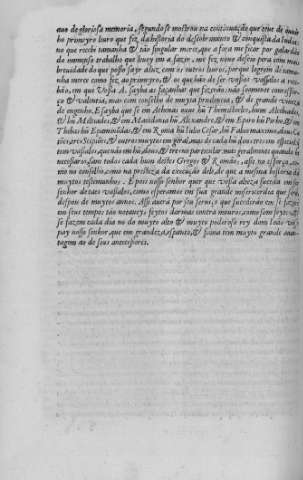 auo de gloriosa memoria, segundo se mostrou na continuação que teue do
no primeyro liuro que fez, da historia do descobrimento & conquista da India:
no que recebi tamanha & tão singular merce, que a força me ficar por galardão
do immenso trabalho que leuey em a fazer, me fez nouo desejo pera com mais
breuidade do que posso sayr aluz, com os outros liuros, porque logrem de tama-
nha merce como fez, ao primeyro, & os que hão de ser vistos vassalos a rece-
bão, em que Vossa A. sayba as façanhas que fizerão, não somente com
ço & valentia, mas com conselho de muyta prudencia, & de grande viueza
de engenho. E sayba que se em Athenas ouue hũ Themistocles, hum Alcibiades,
& hũ Milciades, & em Macedonia hũ Alexandre, & em Epiro hũ Pirho, & em
Thebas hũ Epaminondas, & em Roma hũ Iulio Cesar, hũ Fabio maximo, dous
 & outros muytos em geral, mas de cada hũ dous
tem vassalos, que não em hũ, dous, & tres no particular mas geralmente quando he
necessario, sam todos cada hum destes Gregos & Romãos, assi no esforço, co-
mo no conselho, como na presteza da execução dele, de que a mesma historia da
muytos testemunhos. E pois nosso senhor quer que vossa alteza succeda em ser
senhor de taes vassalos, como esperamos em sua grande misericordia que sera,
despois de muytos annos. Assi auerà por seu seruiço que succederão em se fazer
nos seus tempos tão notaueys feytos darmas contra mouros, como sam feytos, &
se fazem cada dia no do muyto alto & muyto poderoso rey dom Ioão vosso
pay nosso senhor, que em grandeza, espanto, & fama tem muyto grande auan-
tagem ao de seus antecessores.